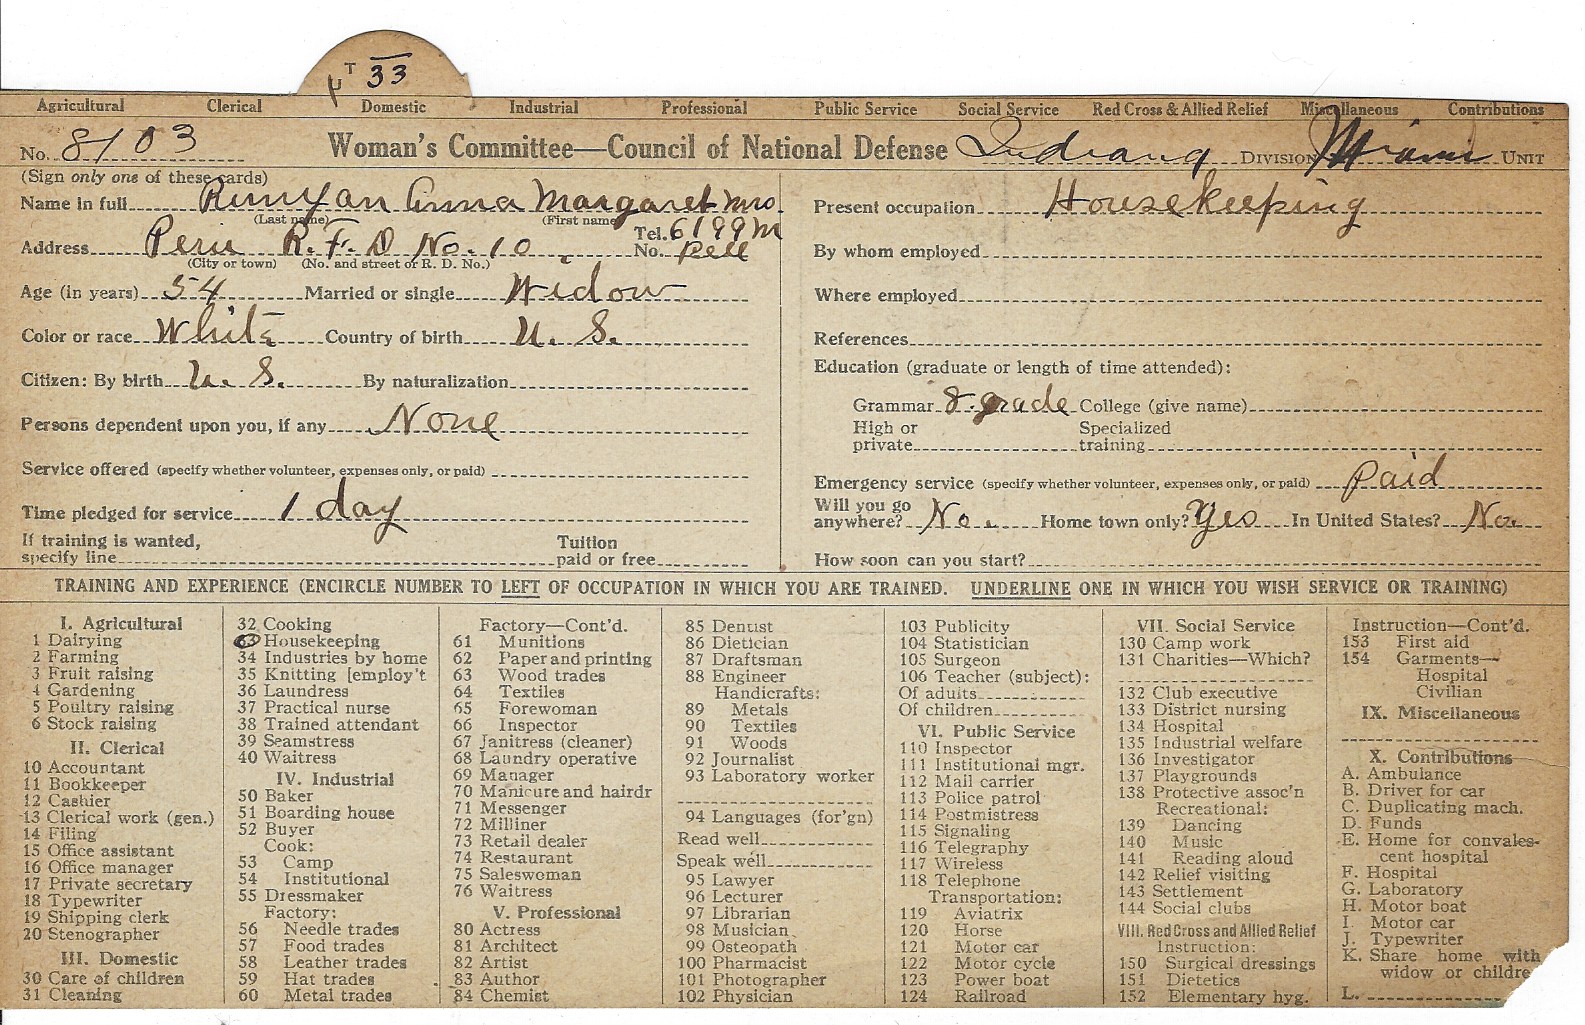 T 33
Agricultural Clerical Domestic Industrial Professional Public Service Social Service Red Cross & Allied Relief Miscellaneous Contributions
No. 8103 Woman's Committee—Council of National Defense Indiana DIVISION Miami UNIT
(Sign only one of these cards)
Name in full Runyan Anna Margaret Mrs.
(Last name) (First name)
Address Peru R. F. D No. 10 Tel. No. 6199M Bell
(City or town) (No. and street or R. D. No.)
Age (in years) 54 Married or single Widow
Color or race White Country of birth U. S.
Citizen: By birth U. S. By naturalization
Persons dependent upon you, if any None
Service offered (specify whether volunteer, expenses only, or paid)
Time pledged for service 1 day
If training is wanted, specify line Tuition paid or free
Present occupation Housekeeping
By whom employed
Where employed
References
Education (graduate or length of time attended):
Grammar 8 grade College (give name)
High or private Specialized training
Emergency service (specify whether volunteer, expenses only, or paid) Paid
Will you go anywhere? No. Home town only? Yes In United States? No.
How soon can you start?
TRAINING AND EXPERIENCE (ENCIRCLE NUMBER TO LEFT OF OCCUPATION IN WHICH YOU ARE TRAINED. UNDERLINE ONE IN WHICH YOU WISH SERVICE OR TRAINING)
I. Agricultural
1 Dairying
2 Farming
3 Fruit raising
4 Gardening
5 Poultry raising
6 Stock raising
II. Clerical
10 Accountant
11 Bookkeeper
12 Cashier
13 Clerical work (gen.)
14 Filing
15 Office assistant
16 Office manager
17 Private secretary
18 Typewriter
19 Shipping clerk
20 Stenographer
III. Domestic
30 Care of children
31 Cleaning
32 Cooking
33 Housekeeping
34 Industries by home
35 Knitting [employ't
36 Laundress
37 Practical nurse
38 Trained attendant
39 Seamstress
40 Waitress
IV. Industrial
50 Baker
51 Boarding house
52 Buyer
Cook:
53 Camp
54 Institutional
55 Dressmaker
Factory:
56 Needle trades
57 Food trades
58 Leather trades
59 Hat trades
60 Metal trades
Factory—Cont'd.
61 Munitions
62 Paper and printing
63 Wood trades
64 Textiles
65 Forewoman
66 Inspector
67 Janitress (cleaner)
68 Laundry operative
69 Manager
70 Manicure and hairdr
71 Messenger
72 Milliner
73 Retail dealer
74 Restaurant
75 Saleswoman
76 Waitress
V. Professional
80 Actress
81 Architect
82 Artist
83 Author
84 Chemist
85 Dentist
86 Dietician
87 Draftsman
88 Engineer
Handicrafts:
89 Metals
90 Textiles
91 Woods
92 Journalist
93 Laboratory worker
94 Languages (for'gn)
Read well
Speak well
95 Lawyer
96 Lecturer
97 Librarian
98 Musician
99 Osteopath
100 Pharmacist
101 Photographer
102 Physician
103 Publicity
104 Statistician
105 Surgeon
106 Teacher (subject):
Of adults
Of children
VI. Public Service
110 Inspector
111 Institutional mgr.
112 Mail carrier
113 Police patrol
114 Postmistress
115 Signaling
116 Telegraphy
117 Wireless
118 Telephone
Transportation:
119 Aviatrix
120 Horse
121 Motor car
122 Motor cycle
123 Power boat
124 Railroad
VII. Social Service
130 Camp work
131 Charities—Which?
132 Club executive
133 District nursing
134 Hospital
135 Industrial welfare
136 Investigator
137 Playgrounds
138 Protective assoc'n
Recreational:
139 Dancing
140 Music
141 Reading aloud
142 Relief visiting
143 Settlement
144 Social clubs
VIII. Red Cross and Allied Relief
Instruction:
150 Surgical dressings
151 Dietetics
152 Elementary hyg.
Instruction—Cont'd.
153 First aid
154 Garments—
Hospital
Civilian
IX. Miscellaneous
X. Contributions
A. Ambulance
B. Driver for car
C. Duplicating mach.
D. Funds
E. Home for convales-
cent hospital
F. Hospital
G. Laboratory
H. Motor boat
I. Motor car
J. Typewriter
K. Share home with
widow or childre
L.